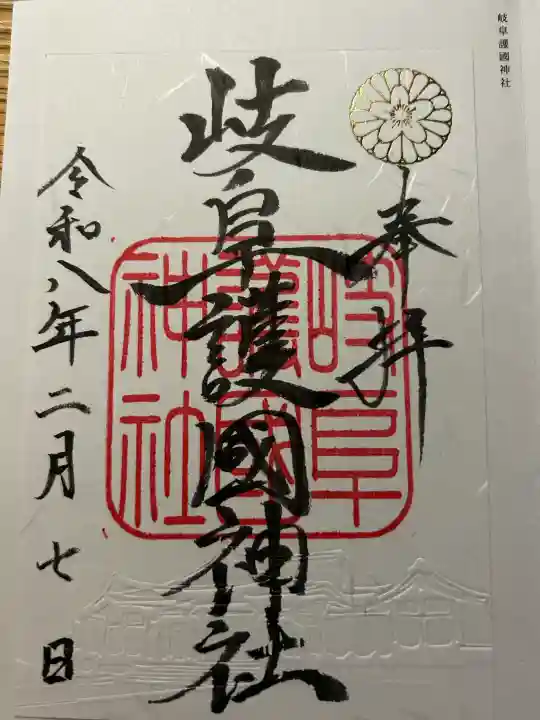 岐阜護國神社
奉拝
岐阜護國神社
岐阜
護國
神社
令和八年二月七日